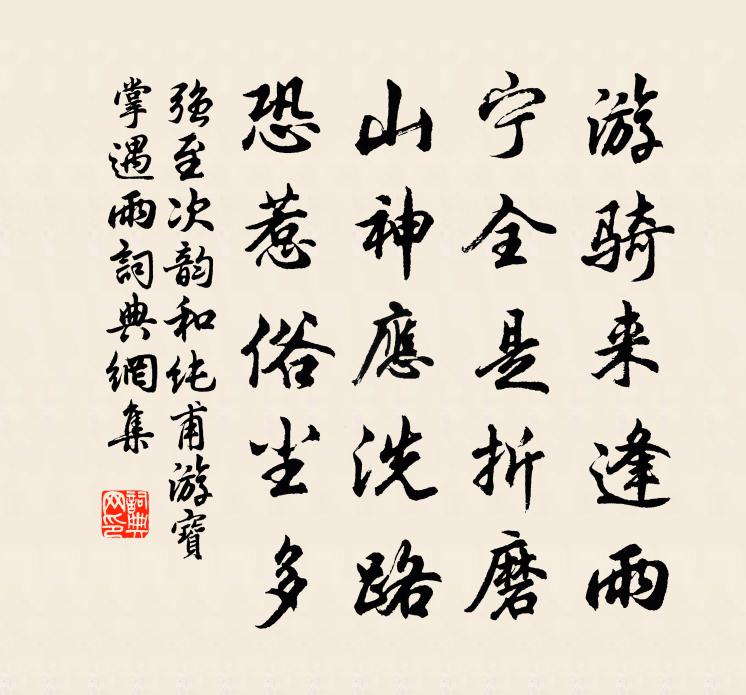 游骑来逢雨
宁全是折磨
山神應洗路
恐惹俗尘多
强至次韵和纯甫游寶
掌遇雨詞典網集
詞典
网印